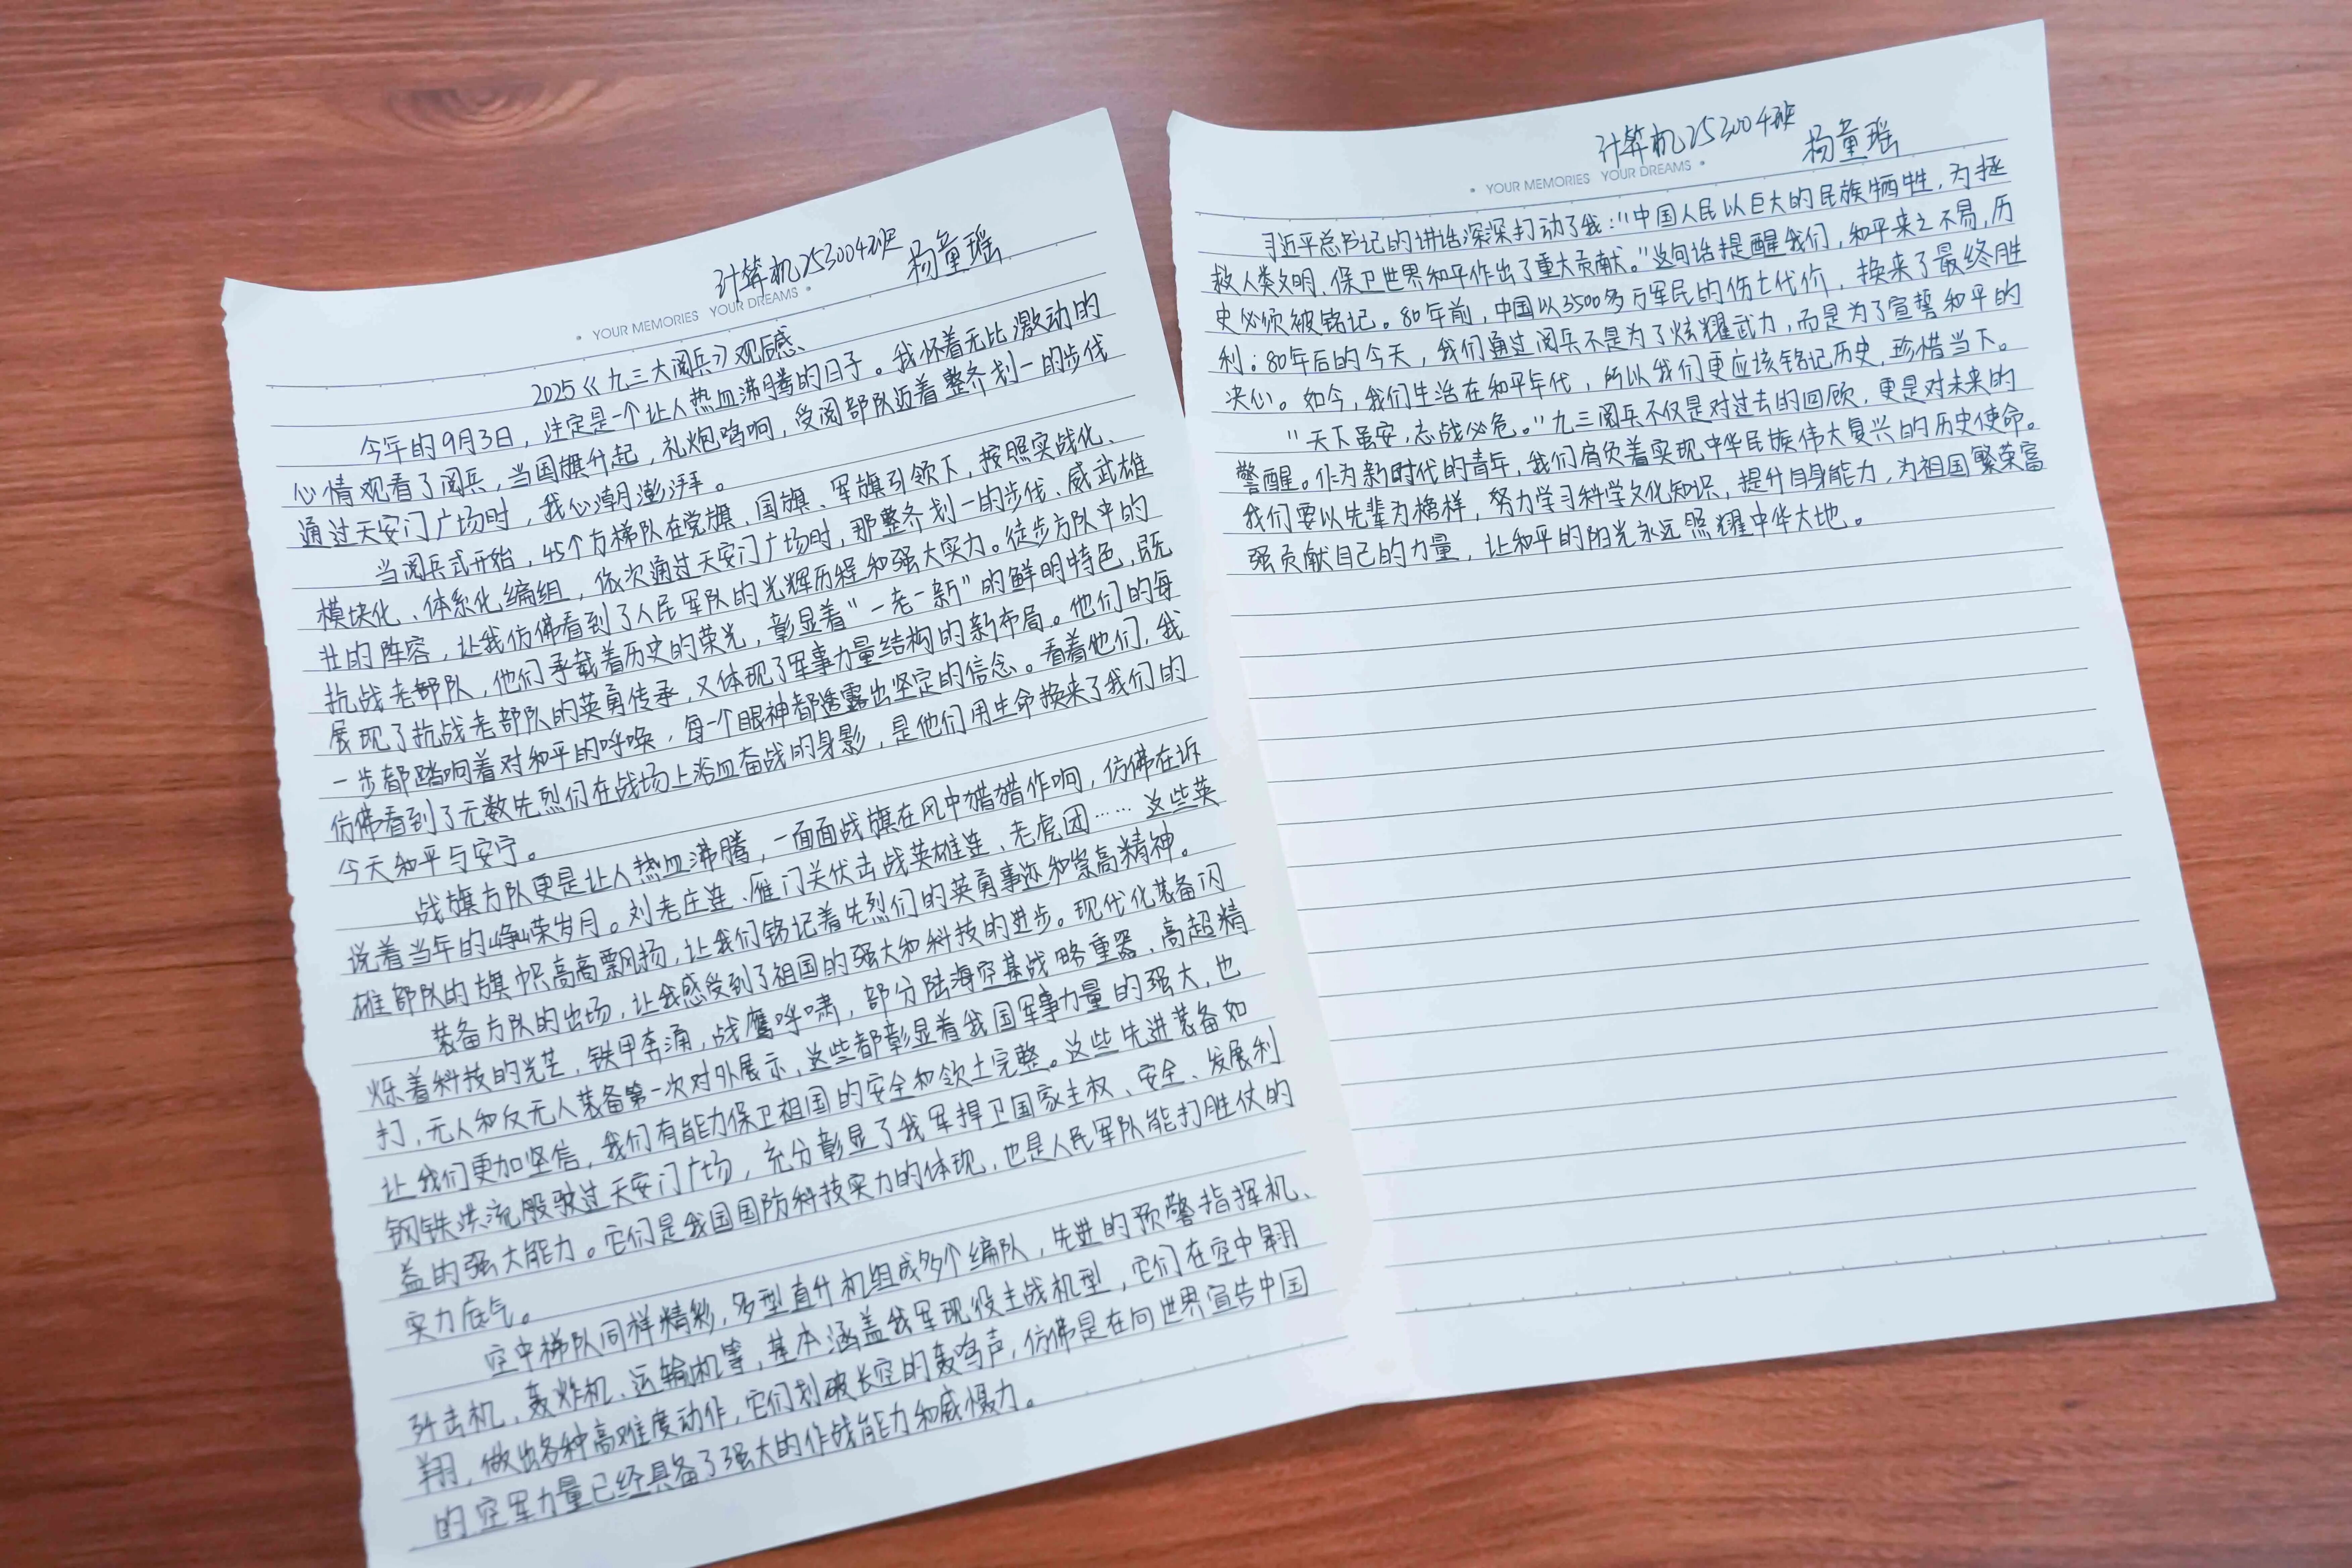 计算机253004班 杨童瑶
• YOUR MEMORIES YOUR DREAMS •
2025《九三大阅兵》观后感
今年的9月3日，注定是一个让人热血沸腾的日子。我怀着无比激动的
心情观看了阅兵，当国旗升起，礼炮鸣响，受阅部队迈着整齐划一的步伐
通过天安门广场时，我心潮澎湃。
当阅兵式开始，45个方梯队在党旗、国旗、军旗引领下，按照实战化、
模块化、体系化编组，依次通过天安门广场时，那整齐划一的步伐、威武雄
壮的阵容，让我仿佛看到了人民军队的光辉历程和强大实力。徒步方队中的
抗战老部队，他们承载着历史的荣光，彰显着“一老一新”的鲜明特色，既
展现了抗战老部队的英勇传承，又体现了军事力量结构的新布局。他们的每
一步都踏响着对和平的呼唤，每一个眼神都透露出坚定的信念。看着他们，我
仿佛看到了无数先烈们在战场上浴血奋战的身影，是他们用生命换来了我们的
今天和平与安宁。
战旗方队更是让人热血沸腾，一面面战旗在风中猎猎作响，仿佛在诉
说着当年的峥嵘岁月。刘老庄连、雁门关伏击战英雄连、老虎团……这些英
雄部队的旗帜高高飘扬，让我们铭记着先烈们的英勇事迹和崇高精神。
装备方队的出场，让我感受到了祖国的强大和科技的进步。现代化装备闪
烁着科技的光芒，铁甲奔涌，战鹰呼啸，部分陆海空基战略重器、高超精
打，无人和反无人装备第一次对外展示，这些都彰显着我国军事力量的强大，也
让我们更加坚信，我们有能力保卫祖国的安全和领土完整。这些先进装备如
钢铁洪流般驶过天安门广场，充分彰显了我军捍卫国家主权、安全、发展利
益的强大能力。它们是我国国防科技实力的体现，也是人民军队能打胜仗的
实力底气。
空中梯队同样精彩，多型直升机组成多个编队，先进的预警指挥机、
歼击机，轰炸机、运输机等，基本涵盖我军现役主战机型，它们在空中翱
翔，做出各种高难度动作，它们划破长空的轰鸣声，仿佛是在向世界宣告中国
的空军力量已经具备了强大的作战能力和威慑力。
计算机253004班 杨童瑶
• YOUR MEMORIES YOUR DREAMS •
习近平总书记的讲话深深打动了我：“中国人民以巨大的民族牺牲，为拯
救人类文明、保卫世界和平作出了重大贡献。”这句话提醒我们，和平来之不易，历
史必须被铭记。80年前，中国以3500多万军民的伤亡代价，换来了最终胜
利；80年后的今天，我们通过阅兵不是为了炫耀武力，而是为了宣誓和平的
决心。如今，我们生活在和平年代，所以我们更应该铭记历史，珍惜当下。
“天下虽安，忘战必危。”九三阅兵不仅是对过去的回顾，更是对未来的
警醒。作为新时代的青年，我们肩负着实现中华民族伟大复兴的历史使命。
我们要以先辈为榜样，努力学习科学文化知识，提升自身能力，为祖国繁荣富
强贡献自己的力量，让和平的阳光永远照耀中华大地。